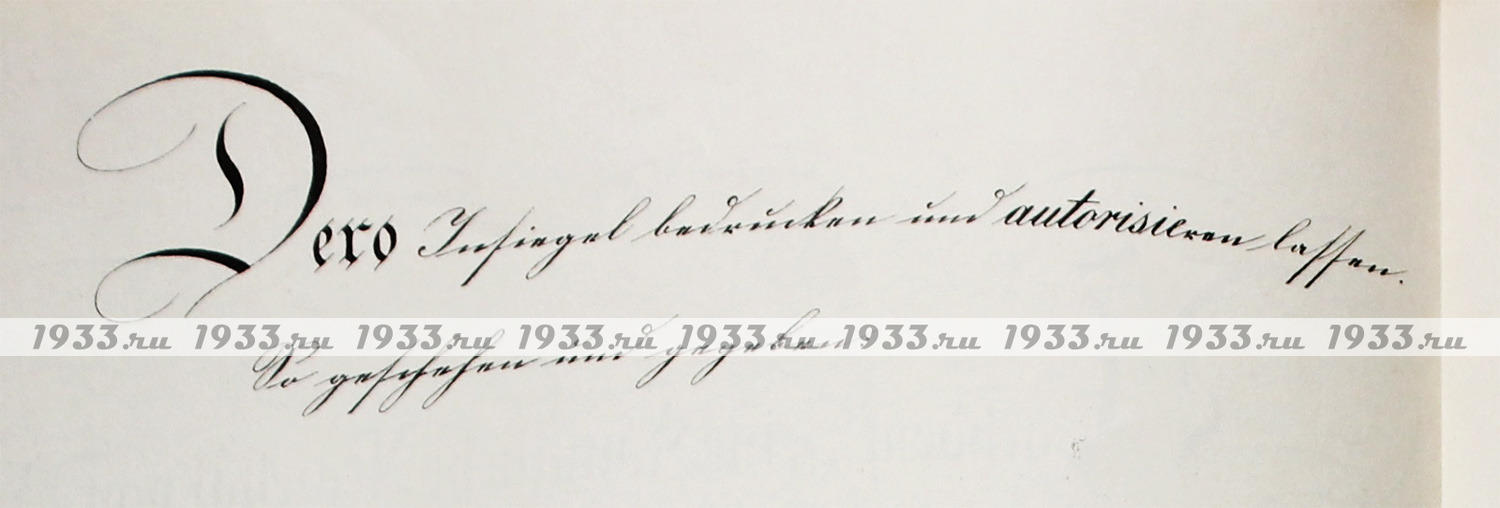 Dero Insiegel bedrucken und autorisieren lassen.
1933.ru 1933.ru 1933.ru 1933.ru 1933.ru 1933.ru 1933.ru 1933.ru 1933.ru
So geschehen und gegeben